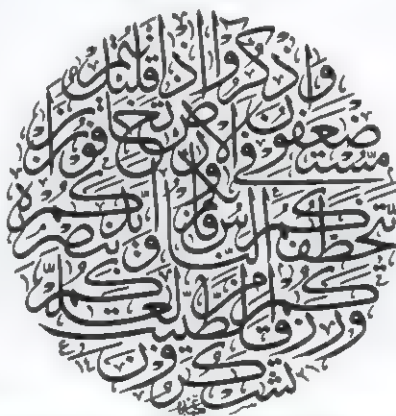 واذكروا إذ أنتم قليل
مستضعفون في الأرض تخافون أن
يتخطفكم الناس فآواكم وأيدكم بنصره
ورزقكم من الطيبات لعلكم
تشكرون